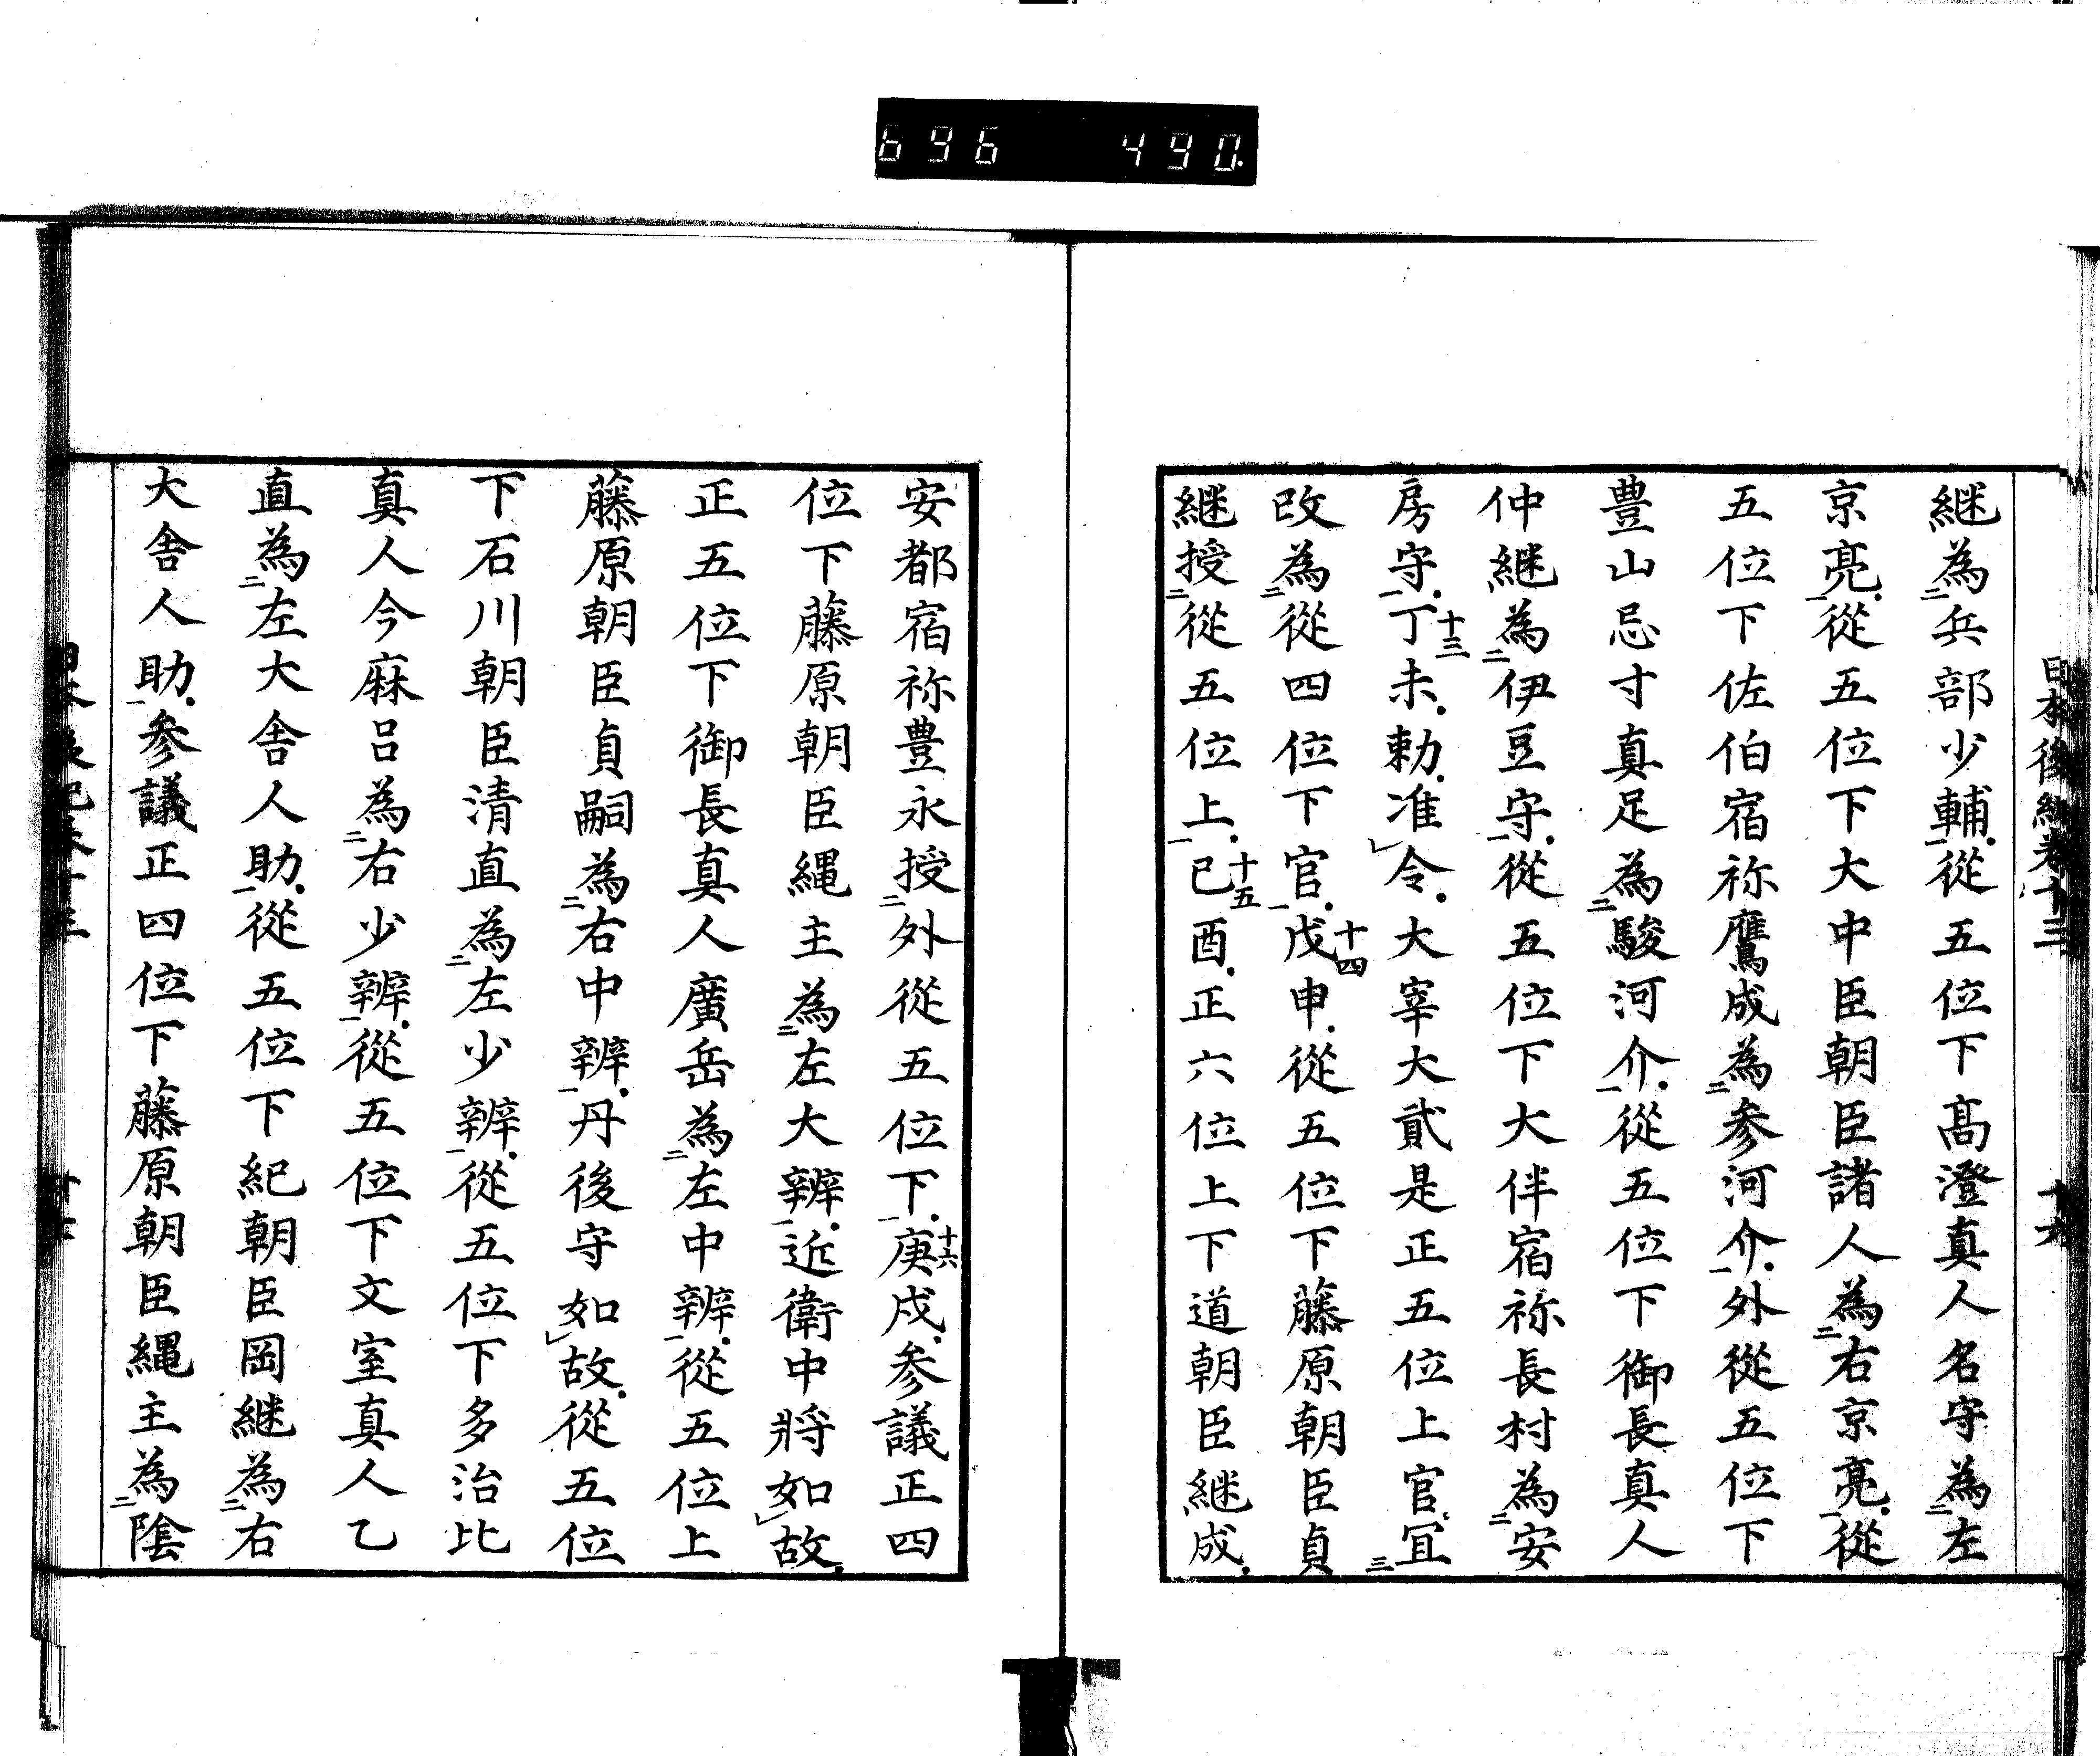 696 490
日本後紀卷十三
十六
継為二兵部少輔一從五位下髙澄真人名守為二左
京亮一從五位下大中臣朝臣諸人為二右京亮一從
五位下佐伯宿祢鷹成為二参河介一外從五位下
豊山忌寸真足為二駿河介一從五位下御長真人
仲継為二伊豆守一從五位下大伴宿祢長村為二安
房守一丁未十三勅准レ令大宰大貳是正五位上官冝三
改為二從四位下官一戊申十四從五位下藤原朝臣貞
継授二從五位上一己酉十五正六位上下道朝臣継成
安都宿祢豊永授二外從五位下一庚戌十六参議正四
位下藤原朝臣縄主為二左大辨一近衛中將如レ故
正五位下御長真人廣岳為二左中辨一從五位上
藤原朝臣貞嗣為二右中辨一丹後守如レ故從五位
下石川朝臣清直為二左少辨一從五位下多治比
真人今麻呂為二右少辨一從五位下文室真人乙
直為二左大舎人助一從五位下紀朝臣岡継為二右
大舎人助一参議正四位下藤原朝臣縄主為二陰